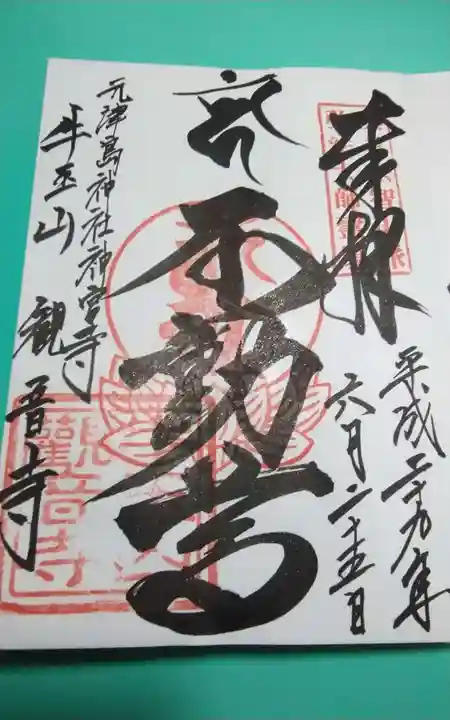 奉拝
平成二十九年
六月二十五日
不動尊
元津島神社神宮寺
牛玉山 観音寺
觀音寺